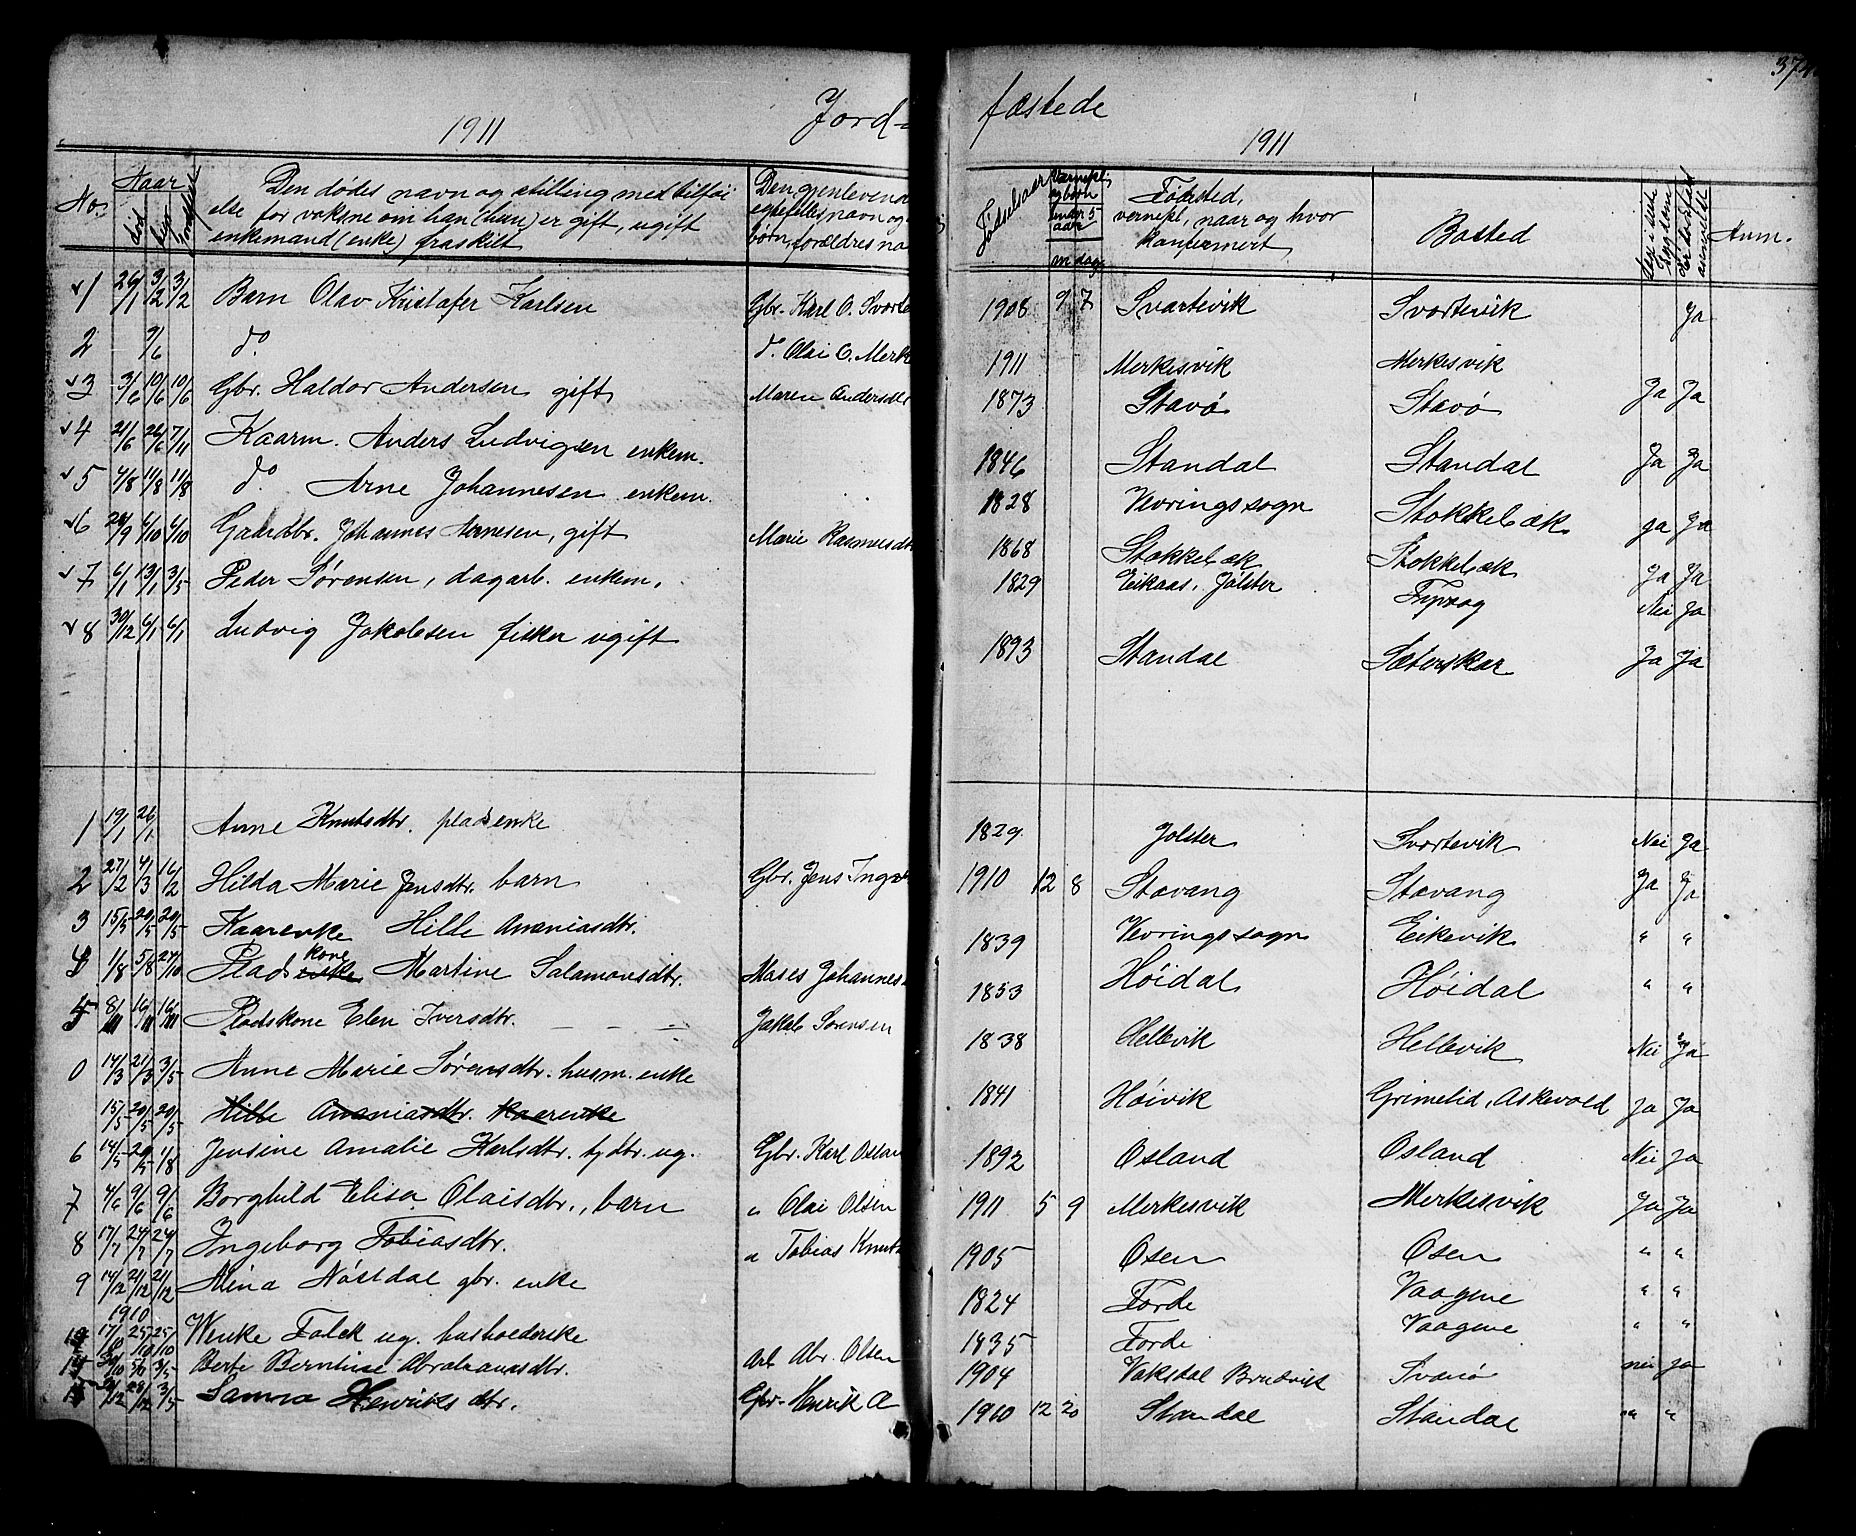 374
1911 Jord- fæstede 1911
No. Naar Den dødes navn og stilling med tilføi Den gjenleven Fødselsaar Vernepl. Føsted, Bosted Anm.
død begr. else for voksne om han (hun) er gift, ugift egtefelles navn og og børn under 5 aar vernepl, naar og hvor
enkemand (enke) fraskilt børn, forældres na m dag konfermert,
1 26/1 3/2 3/2 Barn Olav Kristafer Karlsen Gbr. Karl O. Svorte 1908 9 7 Svartevik Svortevik Ja
2 9/6 do do Olai O. Merk 1911 Merkesvik Merkesvik
3 3/6 10/6 10/6 Gbr. Haldor Andersen gift Maren Andersdt 1873 Stavø Stavø Ja Ja
4 21/6 26/6 7/11 Kaarm. Anders Ludvigsen enkem. 1846 Standal Standal Ja Ja
5 4/8 11/8 11/8 do Arne Johannesen enkem. 1828 Vevringssogn Stokkebæk ja Ja
6 28/9 6/10 6/10 Gaardbr. Johannes Arnesen, gift Marie Rasmusdt 1868 Stokkebæk Stokkebæk Ja Ja
7 6/1 13/1 3/5 Peder Sørensen, dagarb. enkem. 1829 Eikaas, Jølster Nei Ja
8 30/12 6/1 6/1 Ludvig Jakobsen fisker ugift 1893 Standal Sæterskar Ja Ja
1 19/1 26/1 Anne Knutsdtr. pladsenke 1829 Jolster Svortevik Nei Ja
2 27/2 4/3 16/2 Hilda Marie Jensdtr. barn Gbr. Jens Inge 1910 12 8 Stavang Stavang Ja Ja
3 15/5 20/5 20/5 Kaarenke Hille Ananiasdtr. 1839 Vevringssogn Eikevik " "
4 1/8 5/8 27/10 Plads enke kone Martine Salamonsdtr. Moses Johannes 1853 Høidal Høidal " "
5 8/11 16/11 16/11 Pladskone Elen Iversdtr. — — — Jakob Sørensen 1838 Hellevik Hellevik Nei Ja
0 14/3 21/3 3/5 Anne Marie Sørensdtr. husm. enke 1841 Høivik Grimelid, Askevold ja Ja
15/5 20/5 20/5 Hille Ananiasdtr. Kaarenke
6 14/5 20/5 1/8 Jensine Amalie Karlsdtr. tj dtr. ug. Gbr. Karl Oslan 1892 Osland Osland Nei Ja
7 4/6 9/6 9/6 Borghild Elisa Olaisdtr., barn " Olai Olsen 1911 5 9 Merkesvik Merkesvik Ja Ja
8 17/7 24/7 24/7 Ingeborg Tobiasdtr. " Tobias Knut 1905 Osen Osen " "
9 14/12 21/12 21/12 Alina Nøstdal gbr. enke 1824 Førde Vaagene " "
1910
17/8 25/10 25/10 Wenke Falck ug. husholderske 1835 Førde Vaagene " "
Berte Berntine Abrahamsdtr. Arb. Abr. Olsen 1904 Vaksdal Bruvik Svanø nei ja
3/5 Sanna Henriksdtr. Gbr. Henrik O 1910 12 20 Standal Standal " "